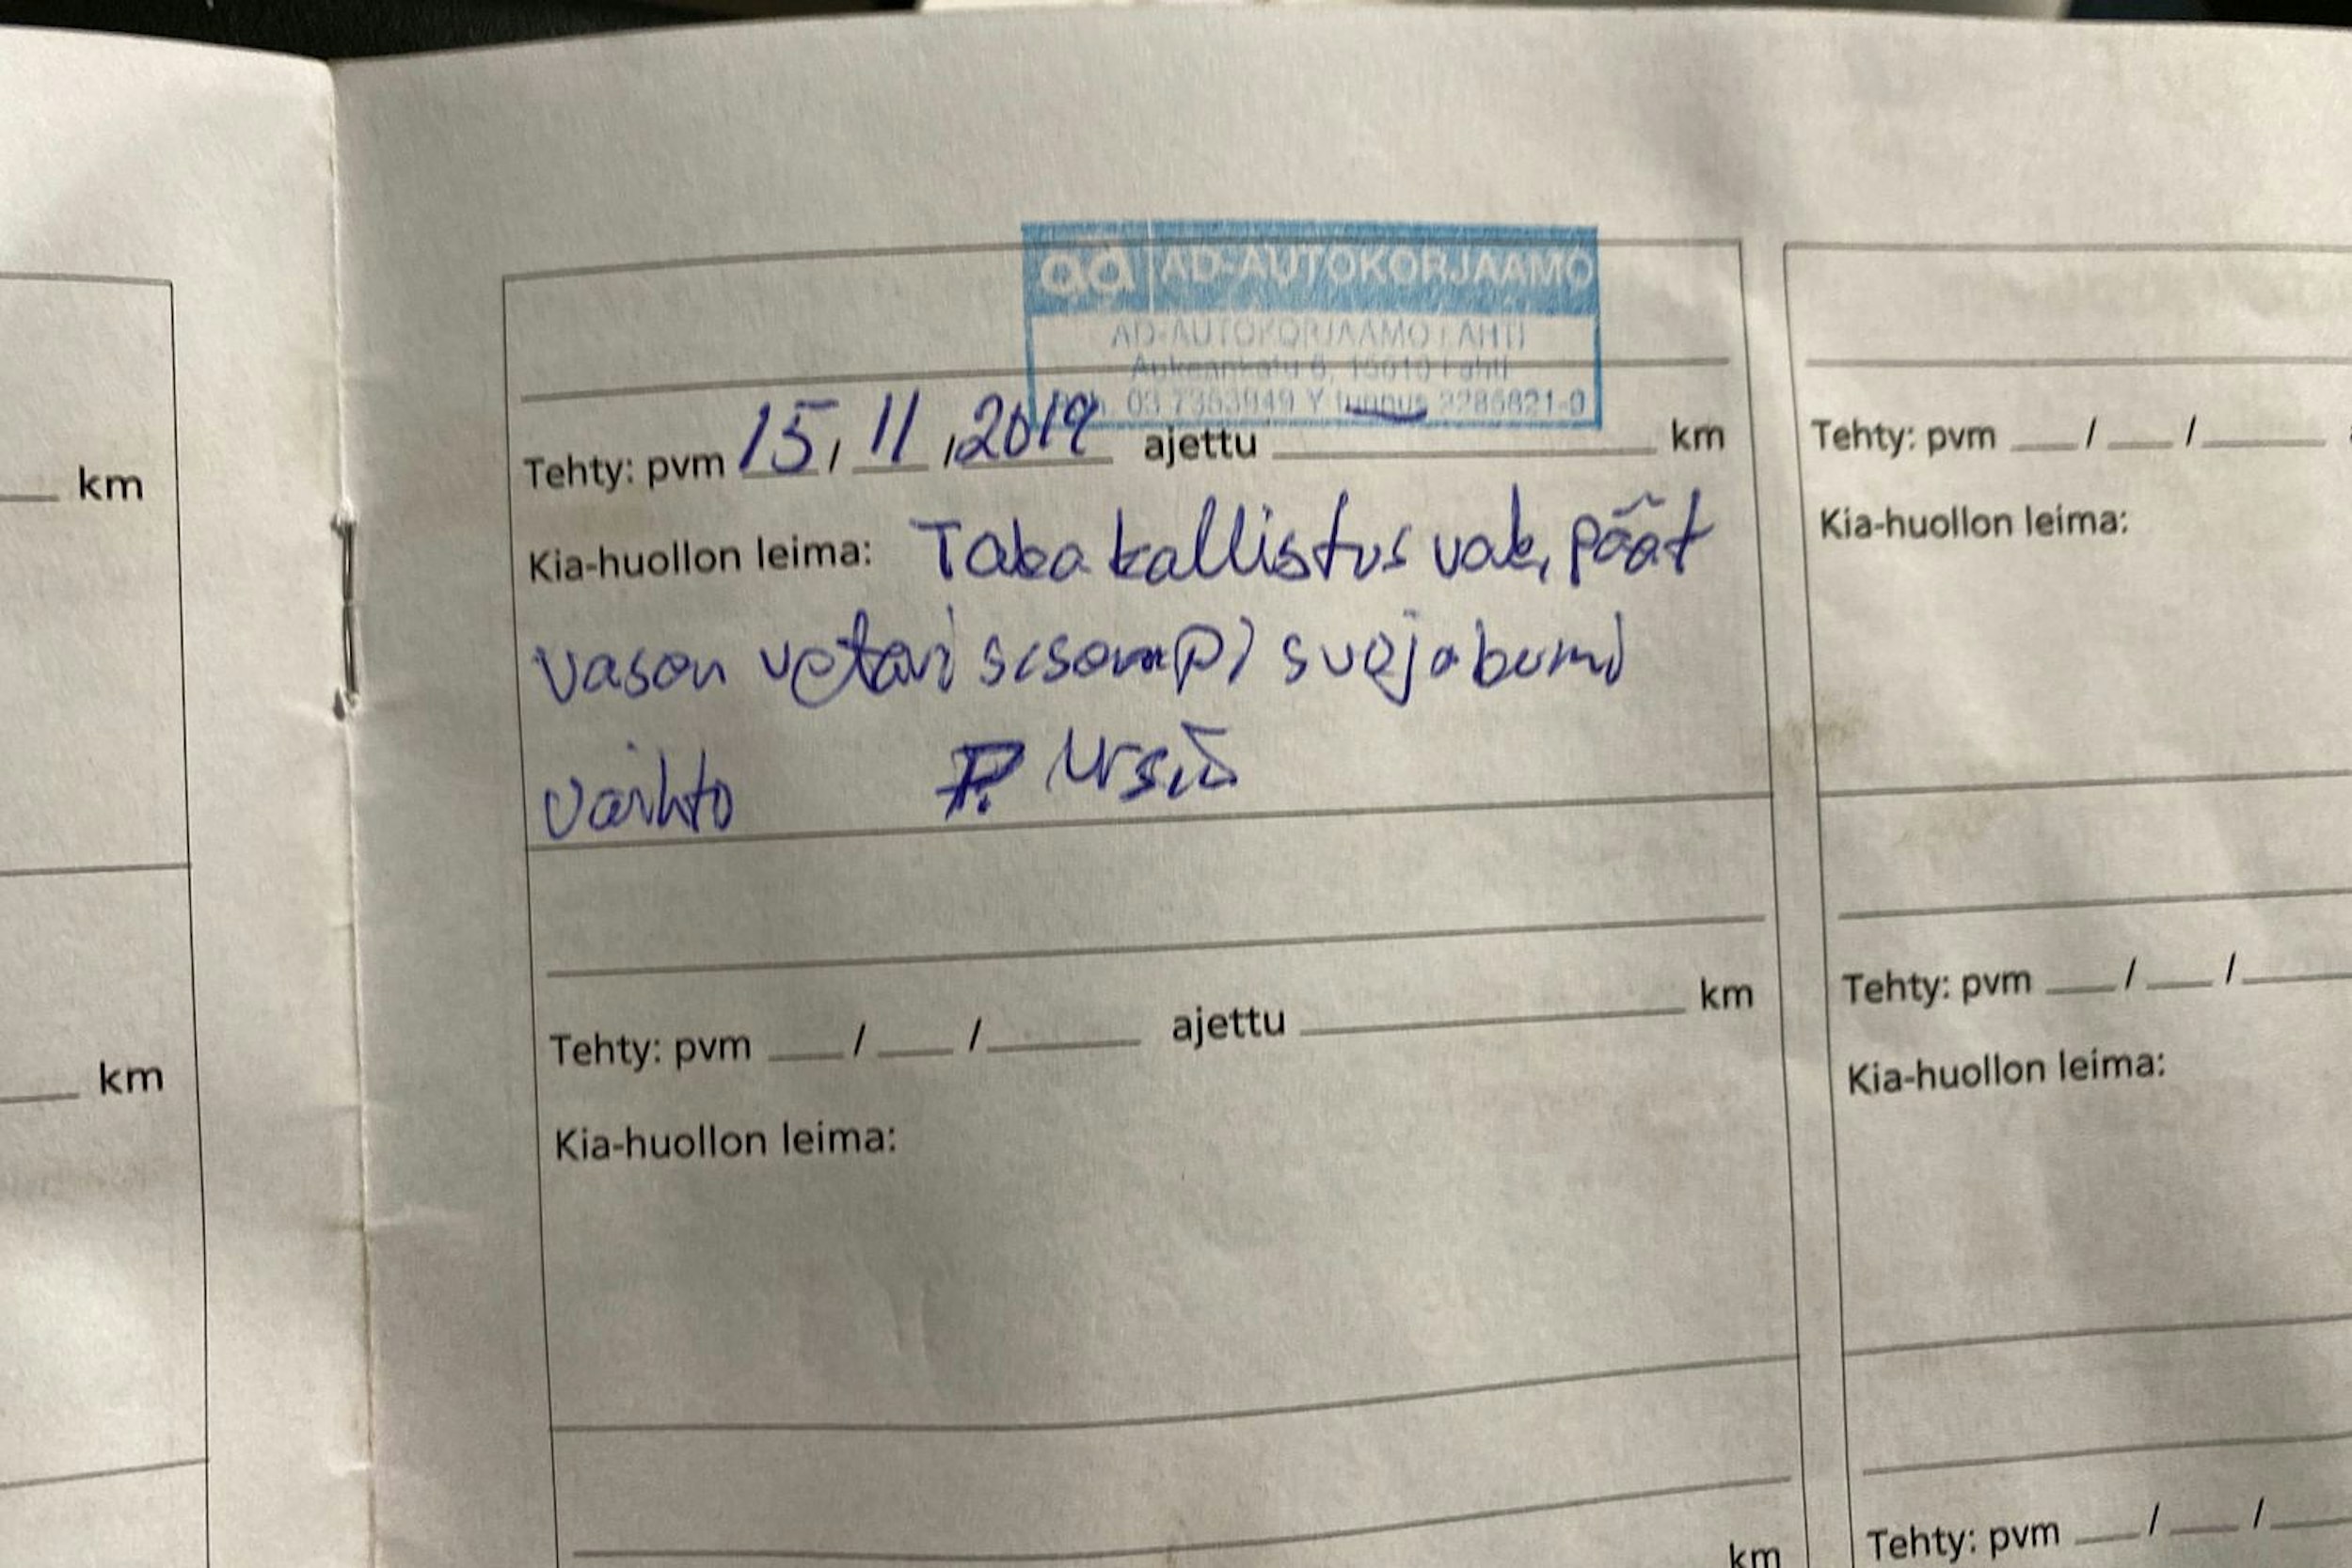 ad AD-AUTOKORJAAMO
AD-AUTOKORJAAMO LAHTI
Aukeankatu 6, 15610 Lahti
03 7353949 Y tunnus 2285821-0
Tehty: pvm 15, 11, 2019 ajettu km
Kia-huollon leima: Taka kallistus vak, päät
vasen vetari sisempi suojakumi
vaihto P.
Tehty: pvm / / ajettu km
Kia-huollon leima:
km
km
km
Tehty: pvm / /
Kia-huollon leima:
Tehty: pvm / /
Kia-huollon leima:
Tehty: pvm / /